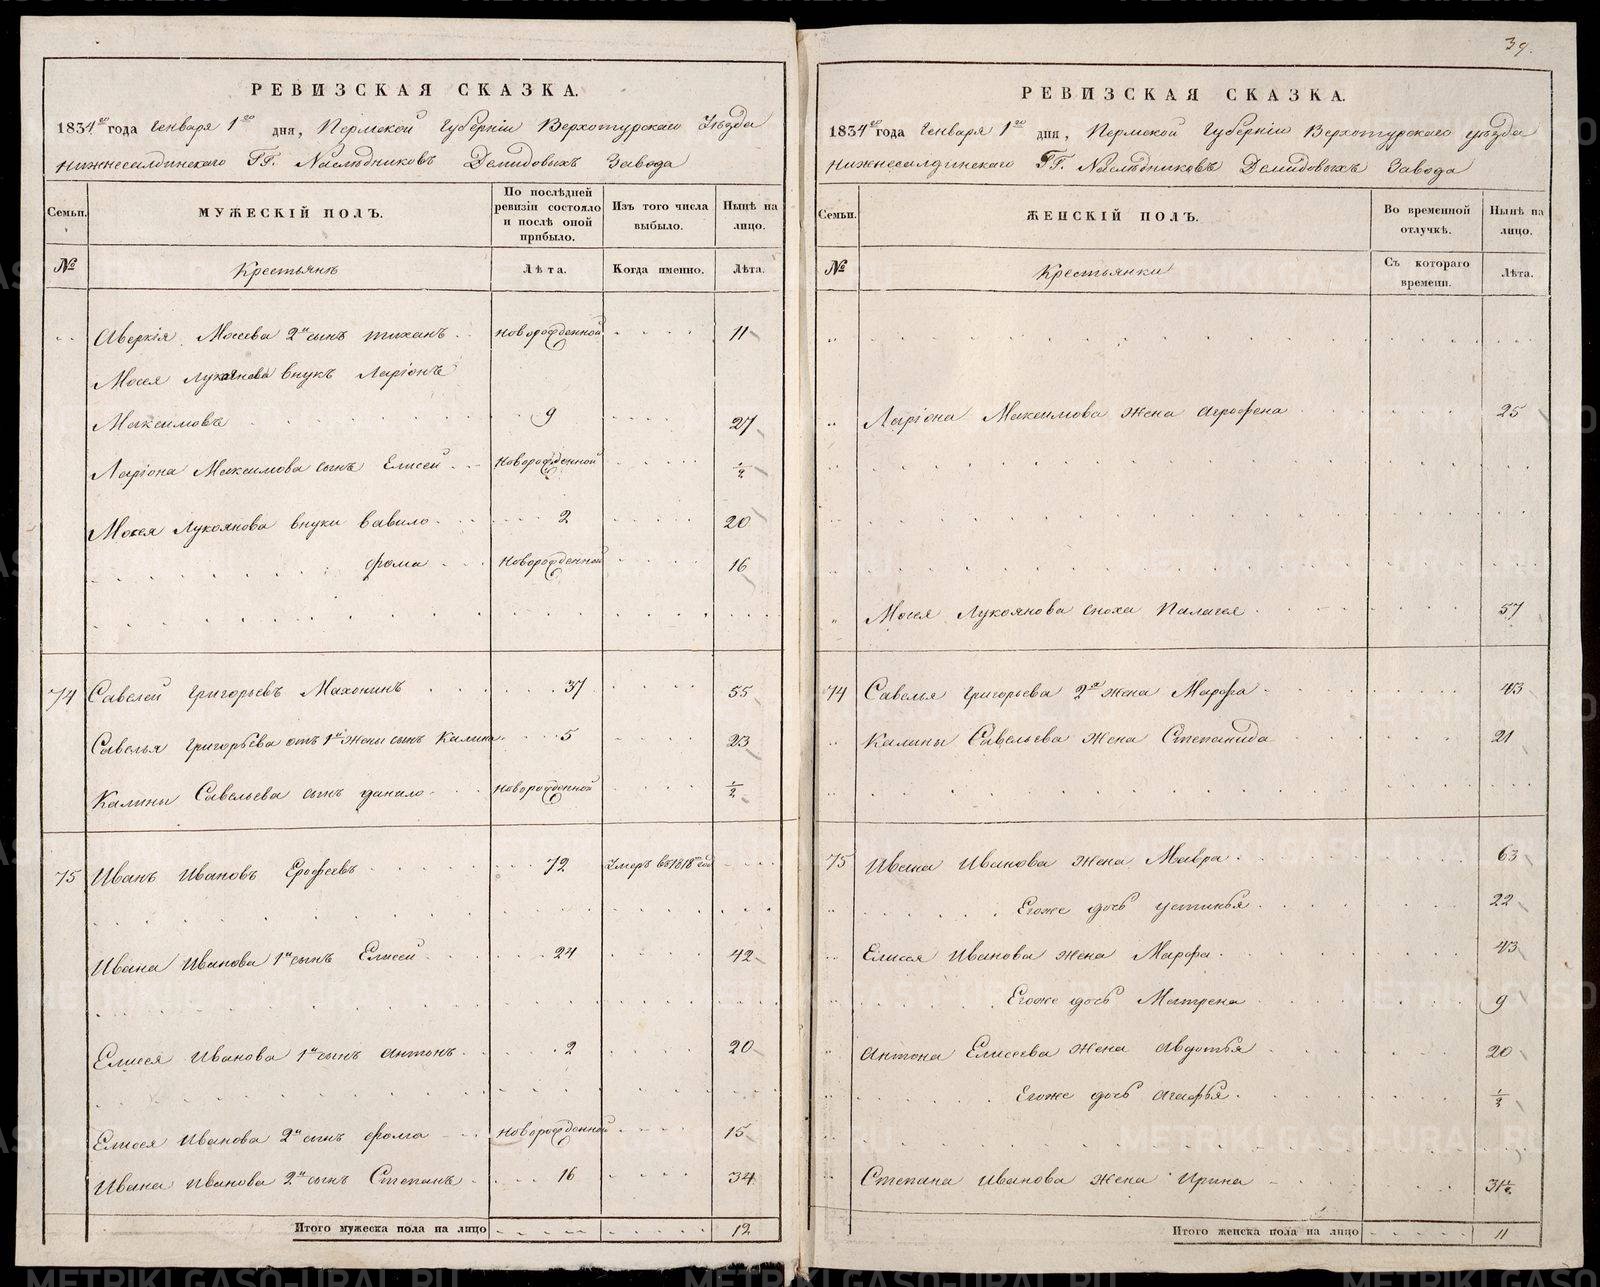 РЕВИЗСКАЯ СКАЗКА.
1834го года Генваря 1го дня, Пермской Губерніи Верхотурскаго Уѣзда
Нижнесалдинскаго ГГ. Наслѣдниковъ Демидовыхъ Завода
Семьи. МУЖЕСКІЙ ПОЛЪ. По послѣдней ревизіи состояло и послѣ оной прибыло. Изъ того числа выбыло. Нынѣ на лицо.
№ Крестьянъ Лѣта. Когда именно. Лѣта.
Аверкія Мосеева 2й сынъ Тиханъ Новорожденной 11
Мосея Лукоянова внукъ Ларіонъ
Максимовъ 9 27
Ларіона Максимова сынъ Елисей Новорожденной ½
Мосея Лукоянова внуки Вавило 2 20
Фома Новорожденной 16
74 Савелей Григорьевъ Махонинъ 37 55
Савелья Григорьева отъ 1й жены сынъ Калина 5 23
Калины Савельева сынъ Данило Новорожденной ½
75 Иванъ Ивановъ Ерофеевъ 72 Умеръ въ 1818м год
Ивана Иванова 1й сынъ Елисей 24 42
Елисея Иванова 1й сынъ Антонъ 2 20
Елисея Иванова 2й сынъ Фома Новорожденной 15
Ивана Иванова 2й сынъ Степанъ 16 34
Итого мужеска пола на лицо 12
39.
РЕВИЗСКАЯ СКАЗКА.
1834го года Генваря 1го дня, Пермской Губерніи Верхотурскаго уѣзда
Нижнесалдинскаго ГГ. Наслѣдниковъ Демидовыхъ Завода
Семьи. ЖЕНСКІЙ ПОЛЪ. Во временной отлучкѣ. Нынѣ на лицо.
№ Крестьянки Съ котораго времени. Лѣта.
Ларіона Максимова жена Агрофена 25
Мосея Лукоянова сноха Палагея 57
74 Савелья Григорьева 2я жена Марфа 43
Калины Савельева жена Степанида 21
75 Ивана Иванова жена Мавра 63
Егоже дочь Устинья 22
Елисея Иванова жена Марфа 43
Егоже дочь Матрена 9
Антона Елисеева жена Авдотья 20
Егоже дочь Агафья
Степана Иванова жена Ирина 31½
Итого женска пола на лицо 11
METRIKI.GASO-URAL.RU